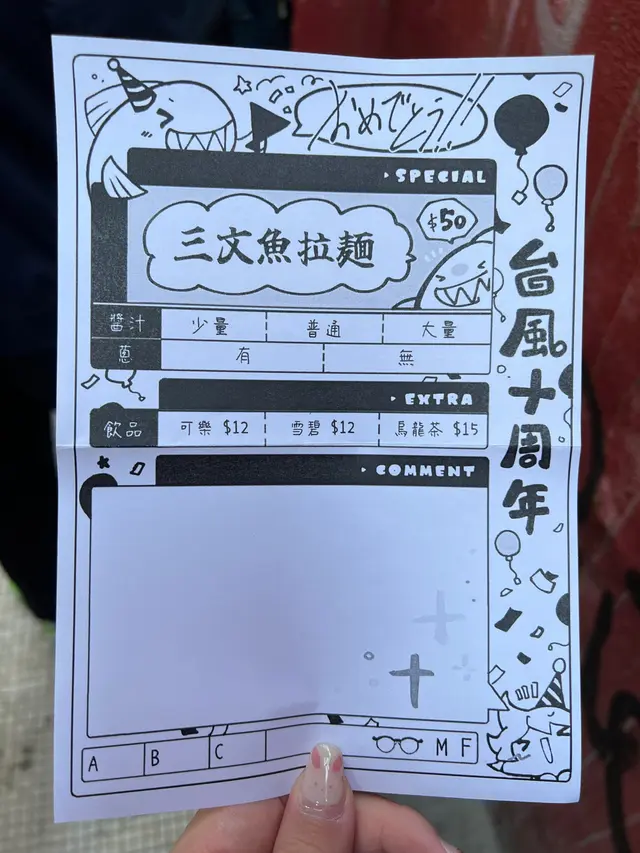 おめでとう!!
SPECIAL
三文魚拉麵
$50
醬汁 少量 普通 大量
蔥 有 無
EXTRA
飲品 可樂 $12 雪碧 $12 烏龍茶 $15
COMMENT
台風十周年
A B C M F